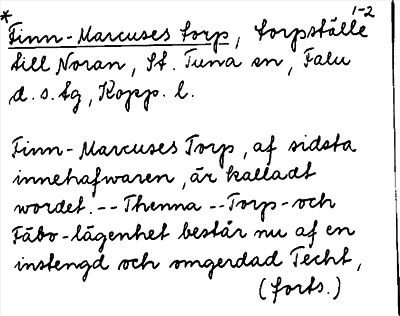 1-2
* Finn-Marcuses torp, torpställe
till Noran, St. Tuna sn, Falu
d.s.tg, Kopp. l.
Finn-Marcuses Torp, af sidsta
innehafwaren, är kalladt
wordet. -- Thenna -- Torp- och
Fäbo-lägenhet består nu af en
instengd och omgerdad Techt,
(forts.)